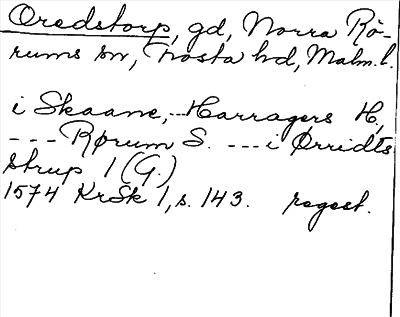 Oredstorp, gd, Norra Rö-
rums sn, Frosta hd, Malm. l.
i Skaane, --- Harragers H,
--- Rørum S. --- i Ørridts
strup 1 (G.)
1574 KrSk 1, s. 143. regest.